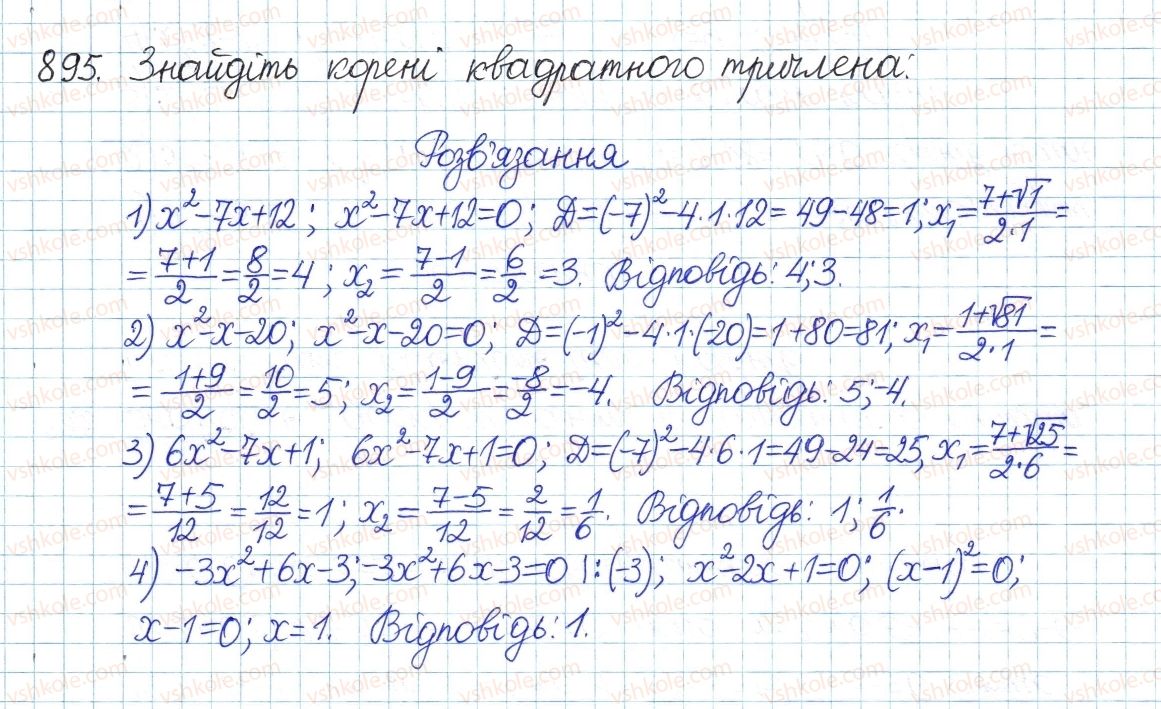 895. Знайдіть корені квадратного тричлена:
Розв'язання
1) x²-7x+12; x²-7x+12=0; D=(-7)²-4·1·12=49-48=1; x₁=(7+√1)/(2·1)=
=(7+1)/2=8/2=4; x₂=(7-1)/2=6/2=3. Відповідь: 4; 3.
2) x²-x-20; x²-x-20=0; D=(-1)²-4·1·(-20)=1+80=81; x₁=(1+√81)/(2·1)=
=(1+9)/2=10/2=5; x₂=(1-9)/2=-8/2=-4. Відповідь: 5; -4.
3) 6x²-7x+1; 6x²-7x+1=0; D=(-7)²-4·6·1=49-24=25, x₁=(7+√25)/(2·6)=
=(7+5)/12=12/12=1; x₂=(7-5)/12=2/12=1/6. Відповідь: 1; 1/6.
4) -3x²+6x-3; -3x²+6x-3=0 |:(-3); x²-2x+1=0; (x-1)²=0;
x-1=0; x=1. Відповідь: 1.